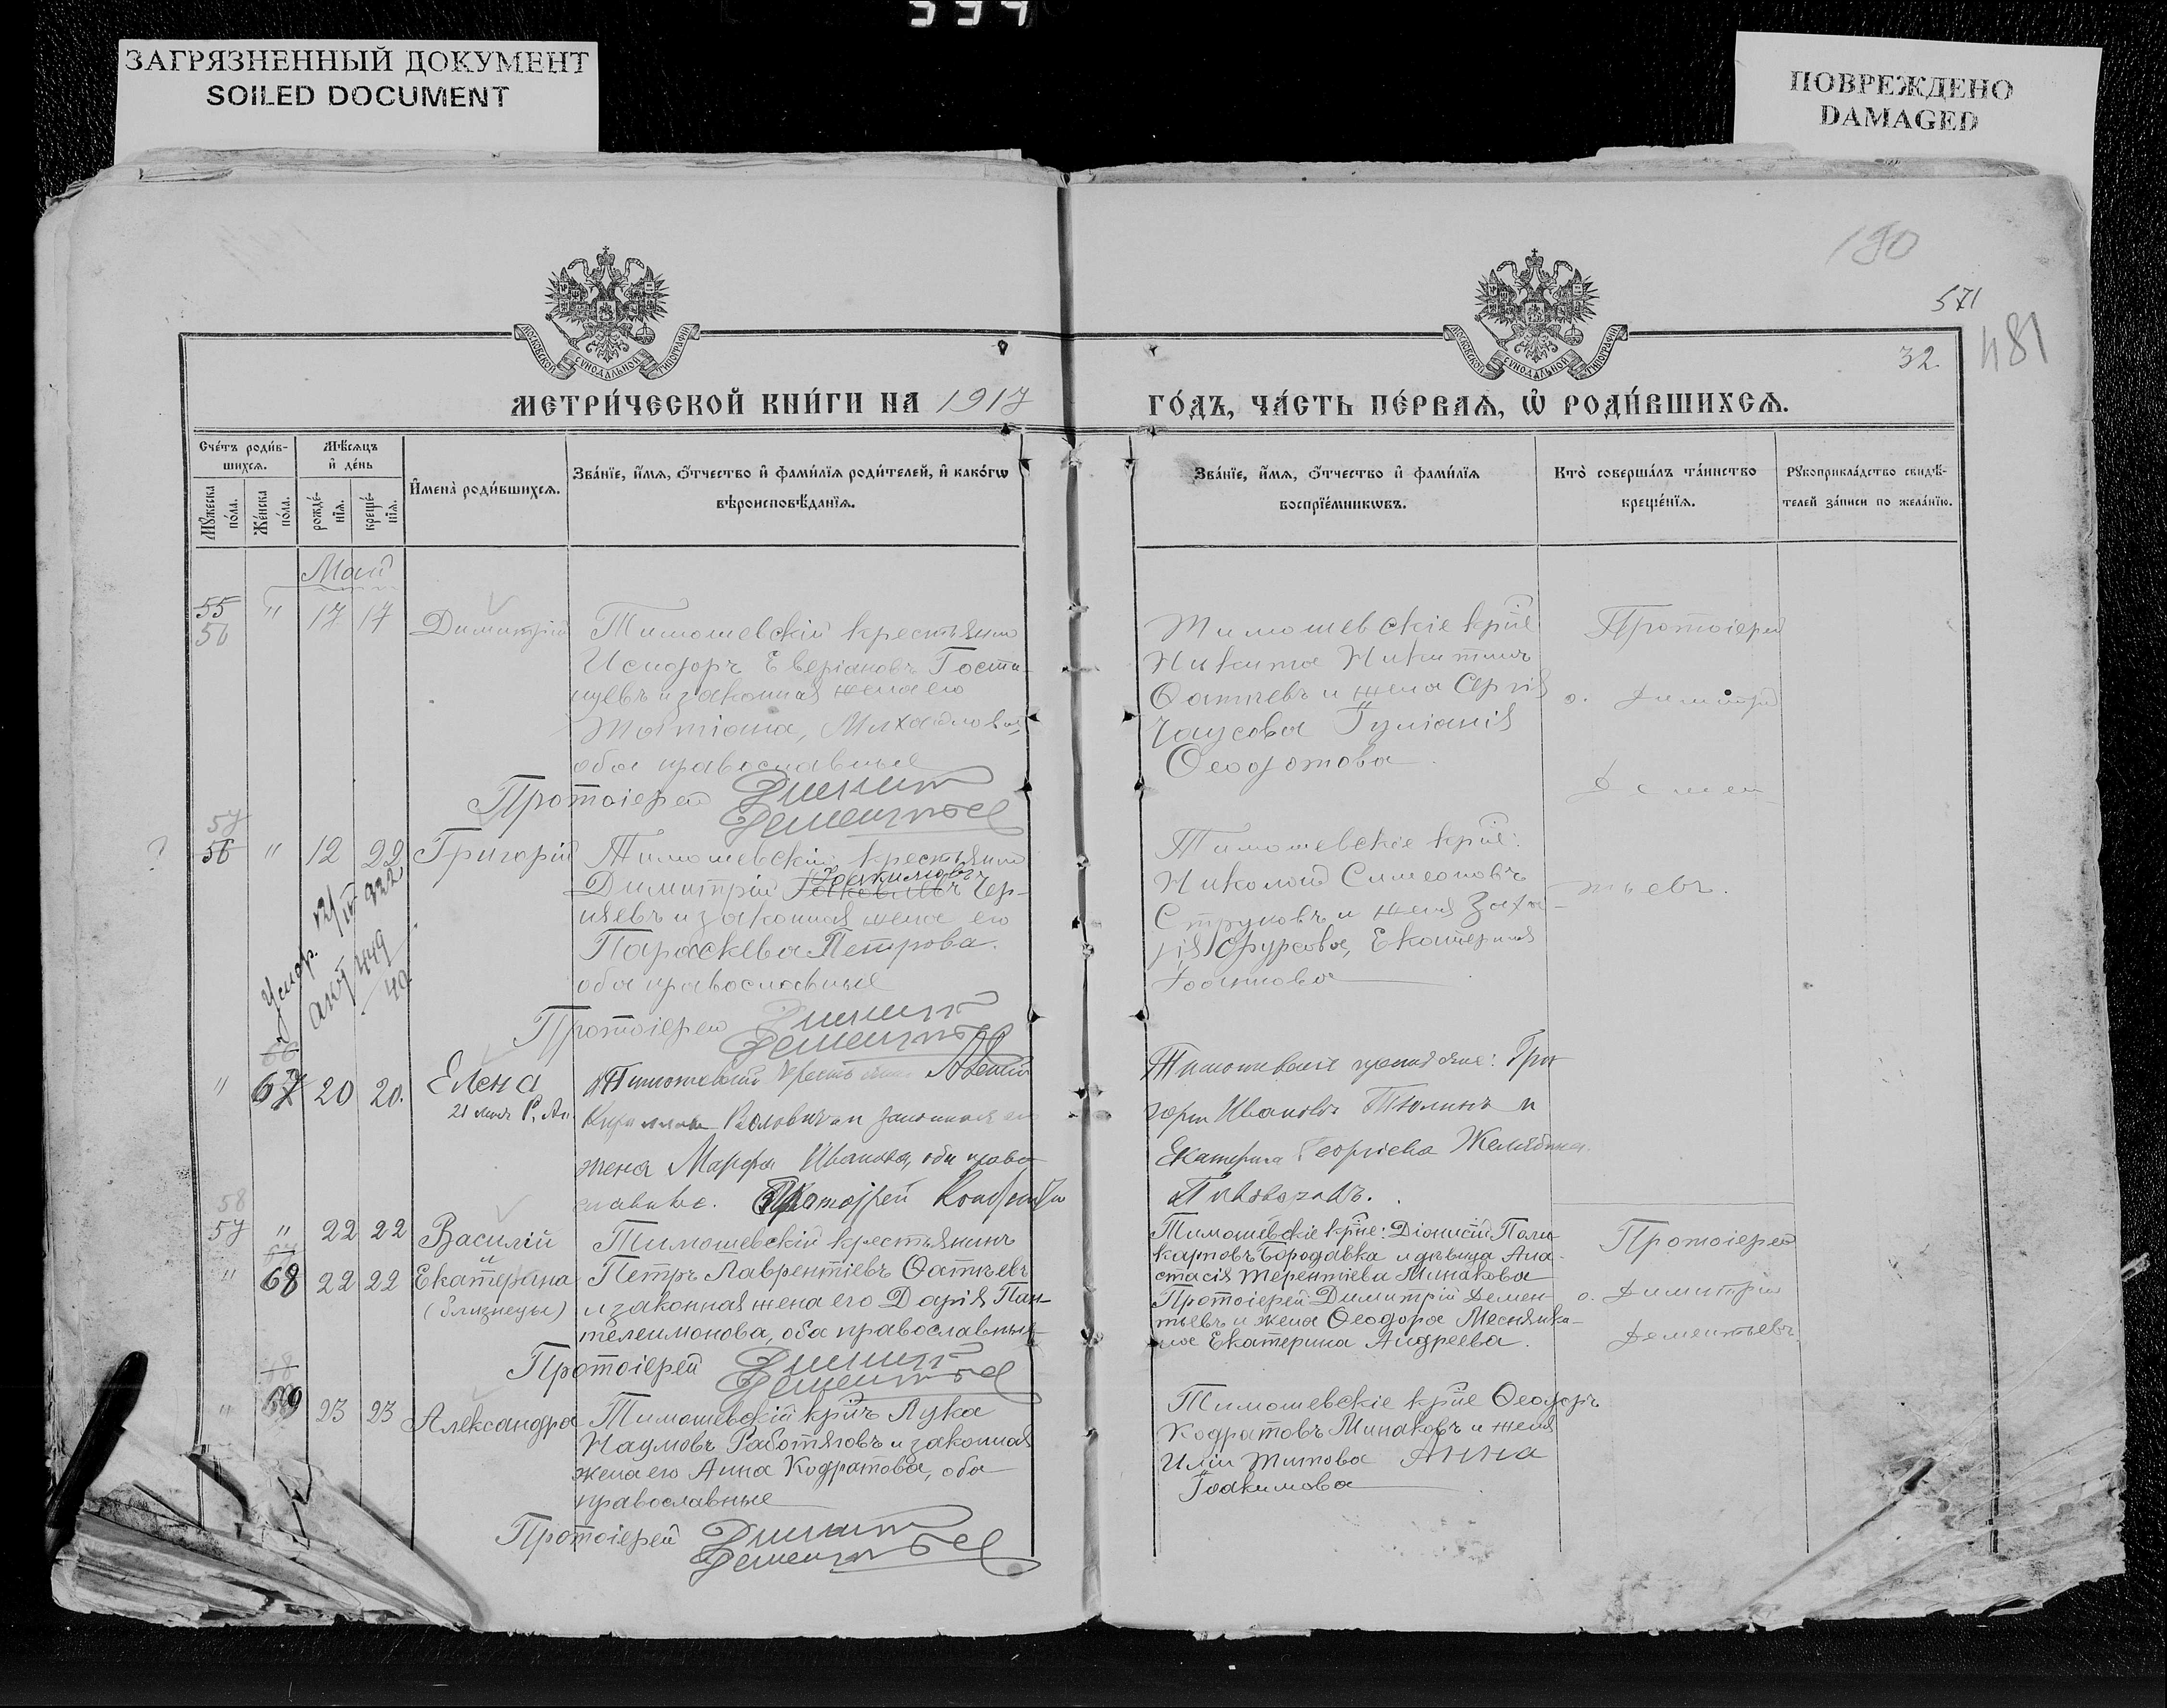 334
ЗАГРЯЗНЕННЫЙ ДОКУМЕНТ
SOILED DOCUMENT
ПОВРЕЖДЕНО
DAMAGED
190
571
481
32.
МОСКОВСКОЙ СѴНОДАЛЬНОЙ ТИПОГРАФІИ
МОСКОВСКОЙ СѴНОДАЛЬНОЙ ТИПОГРАФІИ
МЕТРИ́ЧЕСКОЙ КНИ́ГИ НА 1917
ГО́ДЪ, ЧА́СТЬ ПЕ́РВАѦ, Ѡ҆ РОДИ́ВШИХСѦ.
Сче́тъ роди́в-
шихсѧ.
Мѣ́сѧцъ
и҆ де́нь
Мꙋ́жеска
по́ла.
Же́нска
по́ла.
рожде́-
нїѧ.
креще́-
нїѧ.
И҆мена̀ роди́вшихсѧ.
Зва́нїе, и҆́мѧ, ѻ҆́тчество и҆ фами́лїѧ роди́телей, и҆ како́гѡ
вѣроисповѣ́данїѧ.
Зва́нїе, и҆́мѧ, ѻ҆́тчество и҆ фами́лїѧ
воспрїе́мникѡвъ.
Кто̀ соверша́лъ та́инство
креще́нїѧ.
Рꙋкоприкла́дство свидѣ́-
телей за́писи по жела́нїю.
Май
55 " 17 17 Димитрій
56
Тимошевскій крестьянинъ
Исидоръ Еверіановъ Гости-
щевъ и законная жена его
Татіана, Михайлова,
оба православные
Протоіерей Димит
Дементьев
Тимошевскіе крн̃е
Никита Никитинъ
Ѳатѣевъ и жена Сергія
Чаусова Іуліанія
Ѳеодотова
Протоіерей
о. Димитрій
Демен-
57
? 56 " 12 22 Григорій
Тимошевскій крестьянинъ
Іоакимовъ
Димитрій Чер-
няевъ и законная жена его
Параскева Петрова.
оба православные
Протоіерей Димит
Дементьев
Тимошевскіе крн̃е:
Николай Симеоновъ
Струковъ и жена Заха-
рія Екатерина
Іоаннова
тьевъ.
Умер. 12/IV 922
акт 449
40
66
" 67 20 20. Елена
Тимошевскій крестьянинъ
и законная его
жена Марфа Иванова, оба право-
славные. Протоіерей
Тимошевскіе граждане: Гри-
горій Ивановъ Тюлинъ и
Екатерина Георгіева
58
57 " 22 22 Василій
и
67
" 68 22 22 Екатерина
(близнецы)
Тимошевскій крестьянинъ
Петръ Лаврентіевъ Ѳатѣевъ
и законная жена его Дарія Пан-
телеимонова, оба православные
Протоіерей Димит
Дементьев
Тимошевскіе крн̃е: Діонисій Поли-
карповъ Бородавка и дѣвица Ана-
стасія Терентіева Минакова
Протоіерей Димитрій Демен-
тьевъ и жена Ѳеодора Меснянки-
на Екатерина Андреева.
Протоіерей
о. Димитрій
Дементьевъ
68
" 69 23 23 Александра
Тимошевскій крн̃ъ Лука
Наумовъ Работяговъ и законная
жена его Анна Кодратова, оба
православные
Протоіерей Димит
Дементьев
Тимошевскіе крн̃е Ѳеодоръ
Кодратовъ Минаковъ и жена
Иліи Титова Анна
Іоакимова